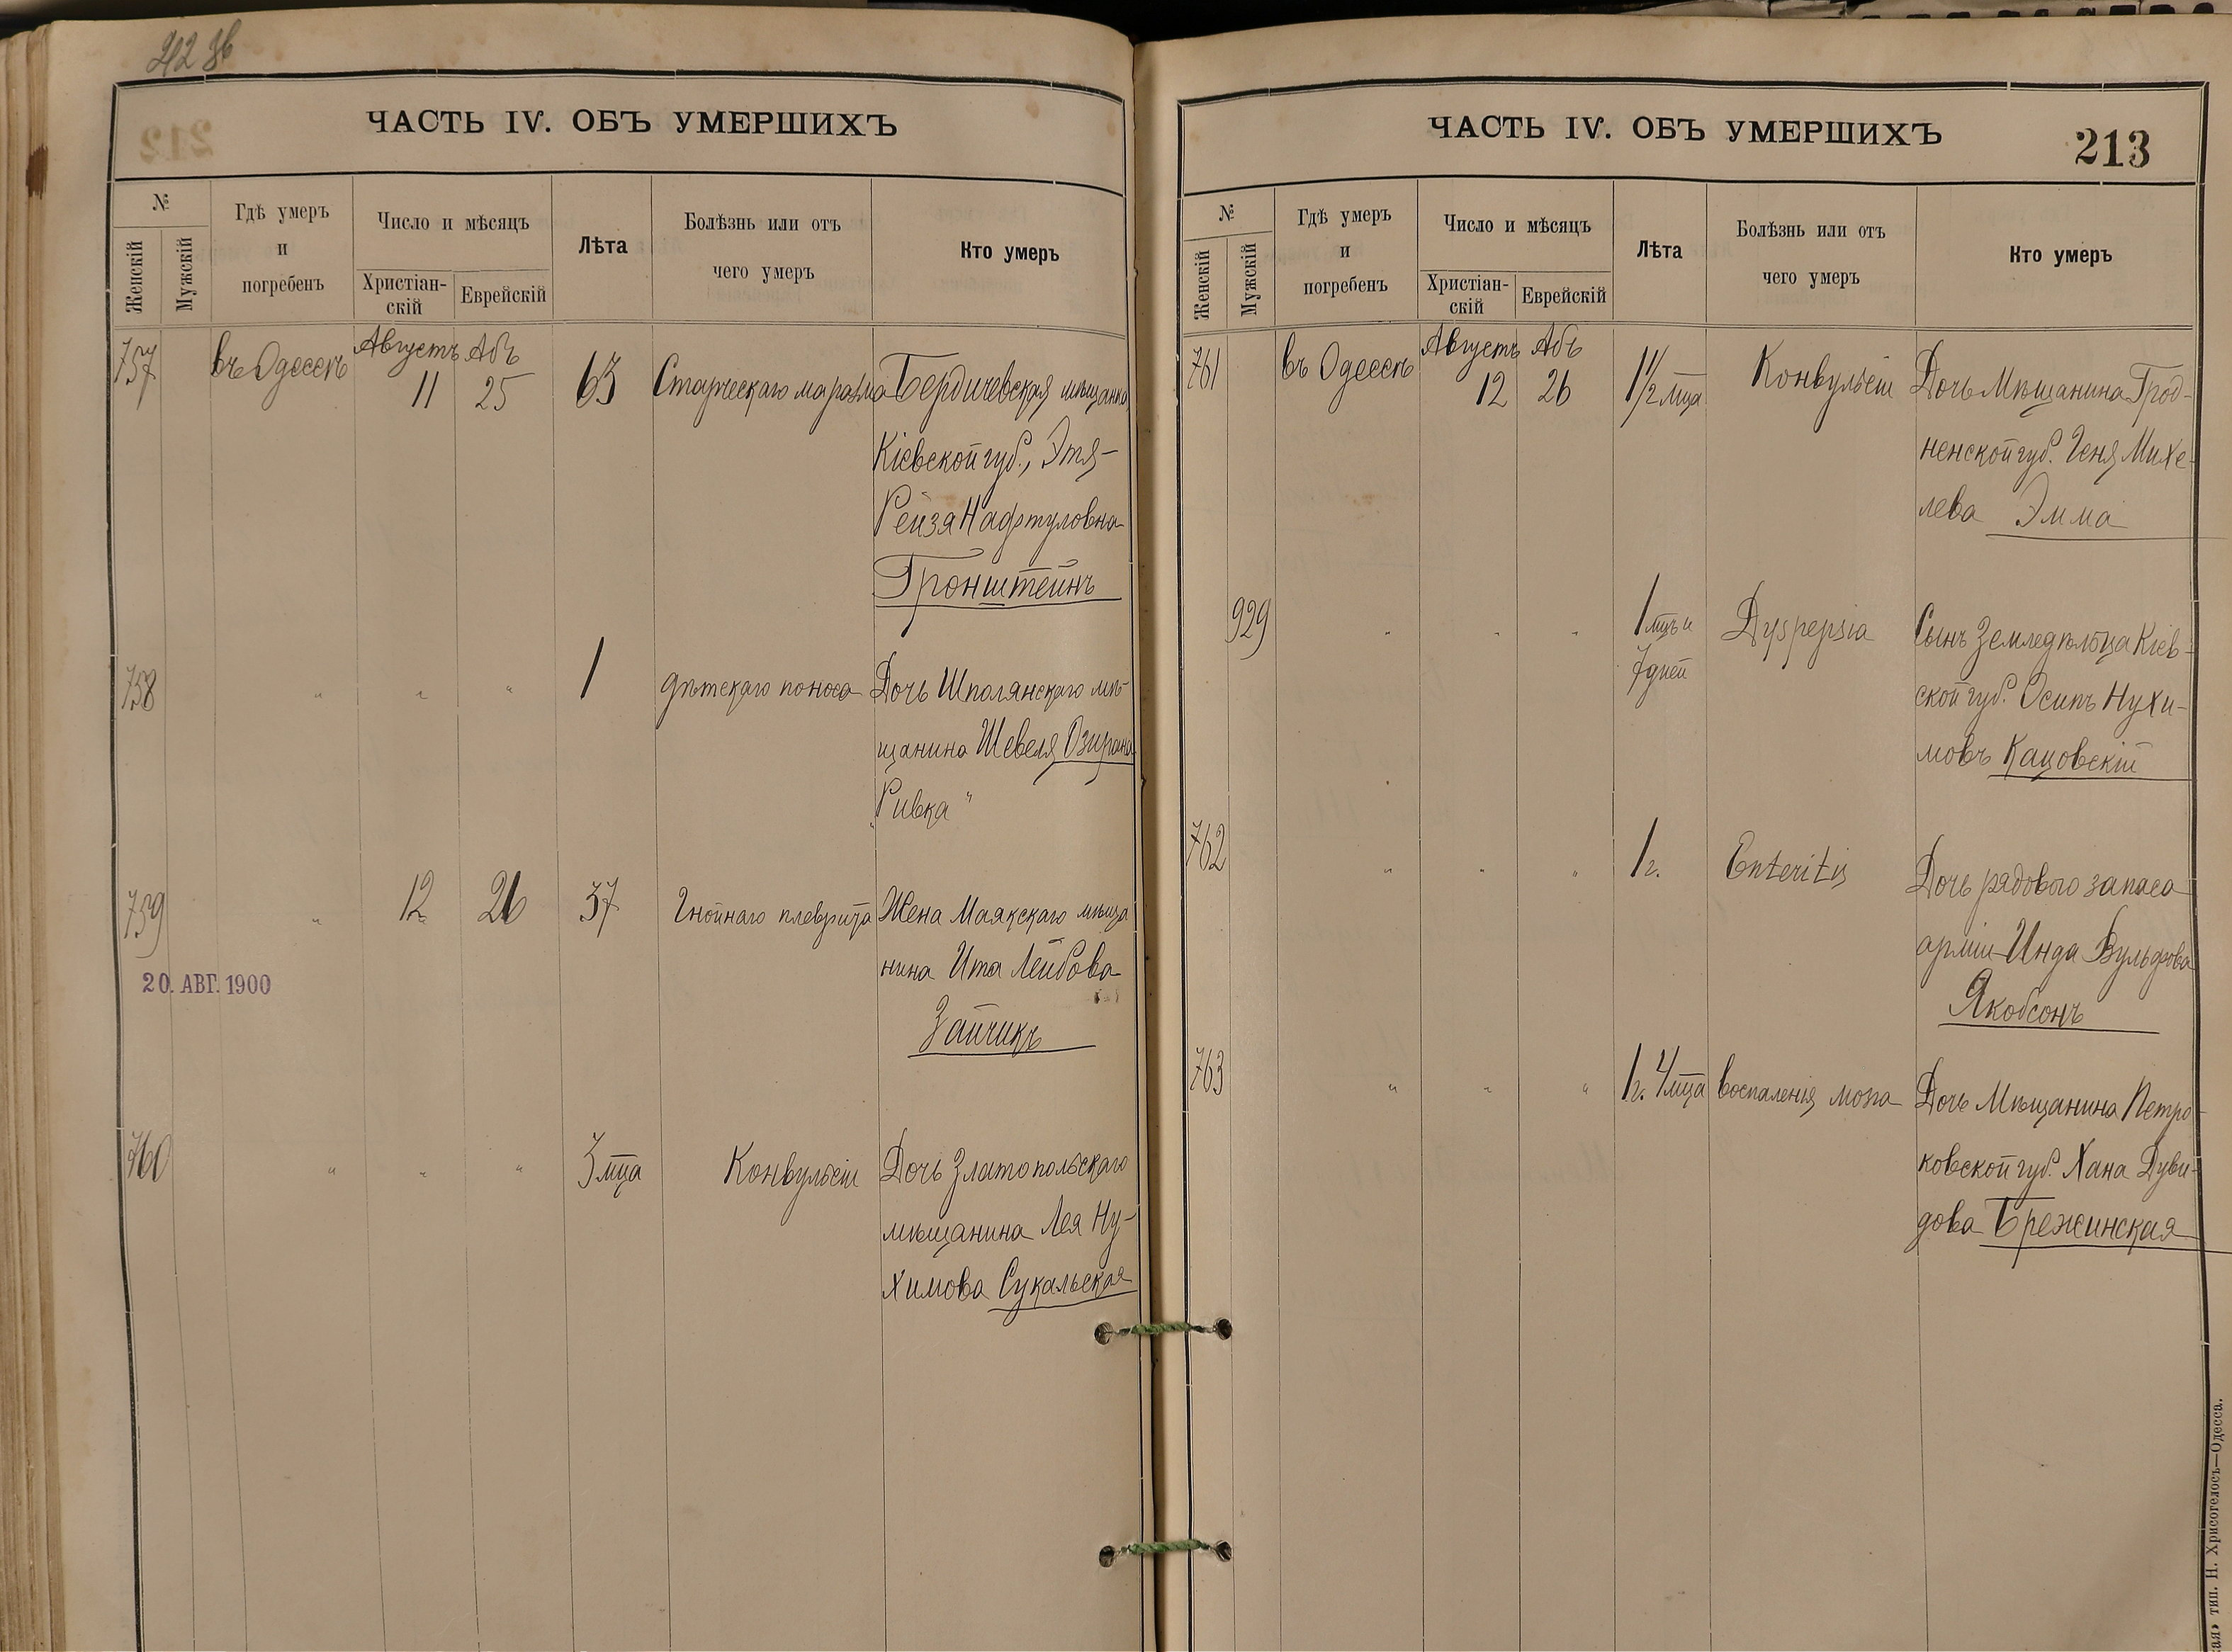 212 зв
ЧАСТЬ IV. ОБЪ УМЕРШИХЪ
№
Женскій
Мужскій
Гдѣ умеръ
и
погребенъ
Число и мѣсяцъ
Христіан-
скій
Еврейскій
Лѣта
Болѣзнь или отъ
чего умеръ
Кто умеръ
757 въ Одессѣ Августъ 11 Абъ 25 63 Старческаго маразма Бердичевская мѣщанка
Кіевской губ., Этя-
Рейзя Нафтуловна
Гронштейнъ
758 " " " 1 дѣтскаго поноса Дочь Шполянскаго мѣ-
щанина Шевеля Озирана
"Ривка"
759 " 12 26 37 гнойнаго плеврита Жена Маякскаго мѣща
нина Ита Лейбова
Зайчикъ
20. АВГ. 1900
760 " " " 3 мца Конвульсіи Дочь Златопольскаго
мѣщанина Лея Ну-
химова Сукальская
ЧАСТЬ IV. ОБЪ УМЕРШИХЪ
213
№
Женскій
Мужскій
Гдѣ умеръ
и
погребенъ
Число и мѣсяцъ
Христіан-
скій
Еврейскій
Лѣта
Болѣзнь или отъ
чего умеръ
Кто умеръ
761 въ Одессѣ Августъ 12 Абъ 26 1 1/2 мца Конвульсіи Дочь Мѣщанина Грод-
ненской губ. Геня Михе-
лева Эмма
929 " " " 1 мцъ и
7 дней Dyspepsia Сынъ Земледѣльца Кіев-
ской губ. Осипъ Нухи-
мовъ Кацовскій
762 " " " 1 г. Enteritis Дочь рядового запаса
арміи Инда Вульфова
Якобсонъ
763 " " " 1 г. 4 мца воспаленія мозга Дочь Мѣщанина Петро-
ковской губ. Хана Дуви-
дова Брежинская
тип. Н. Хрисогелосъ—Одесса.